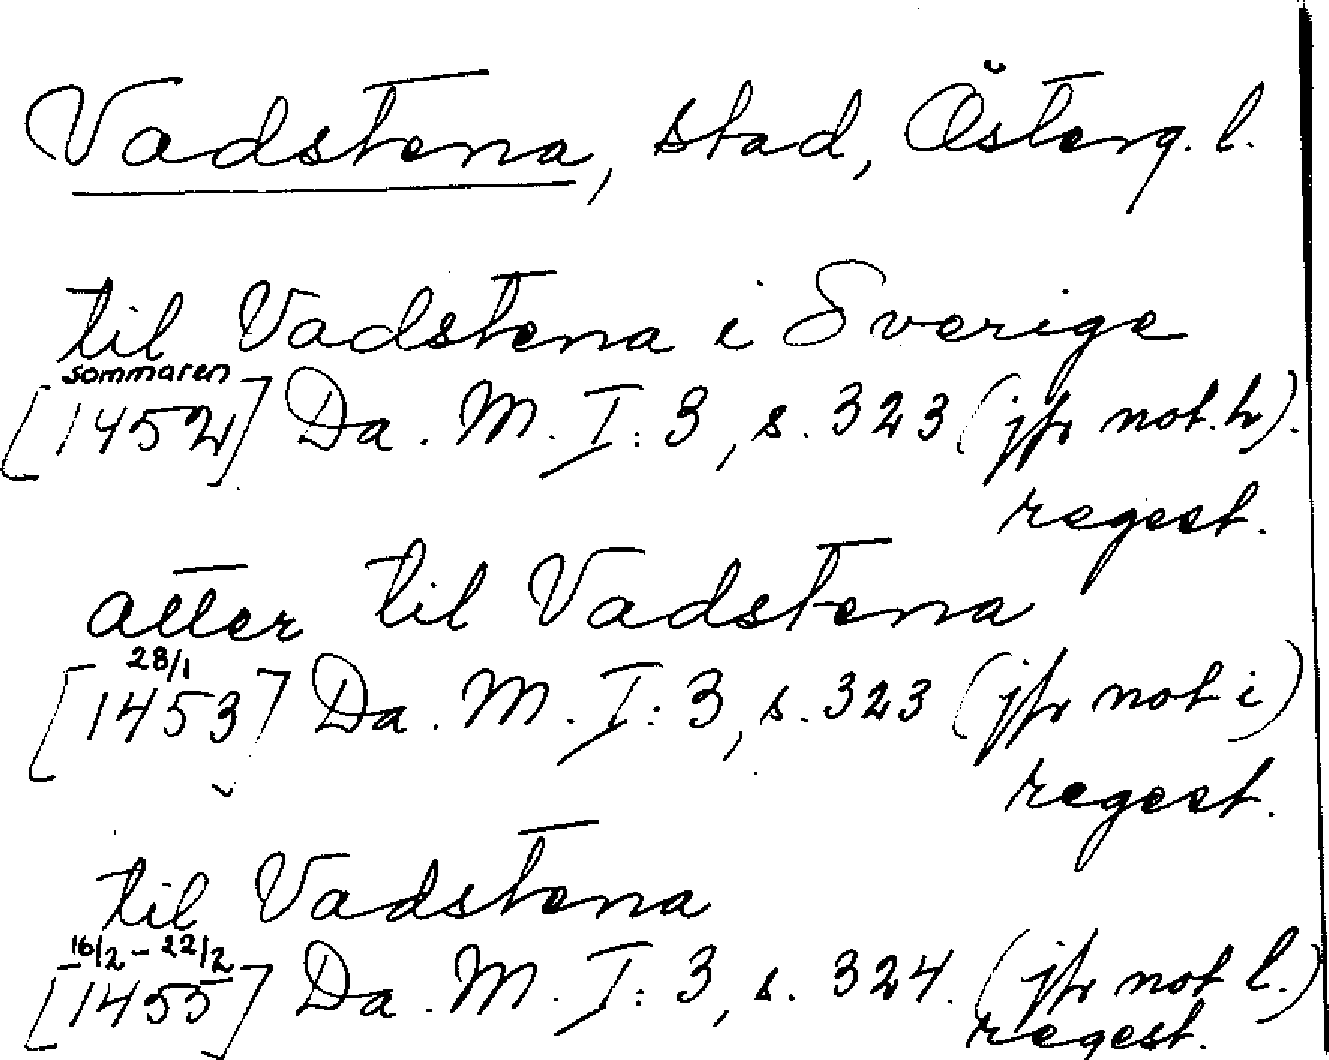 Vadstena, stad, Österg. l.
til Vadstena i Sverige
sommaren
[1452] Da. M. I: 3, s. 323 (jfr not. h).
regest.
atter til Vadstena
28/1
[1453] Da. M. I: 3, s. 323 (jfr not i)
regest.
til Vadstena
16/2 - 22/2
[1455] Da. M. I: 3, s. 324. (jfr not l.)
regest.